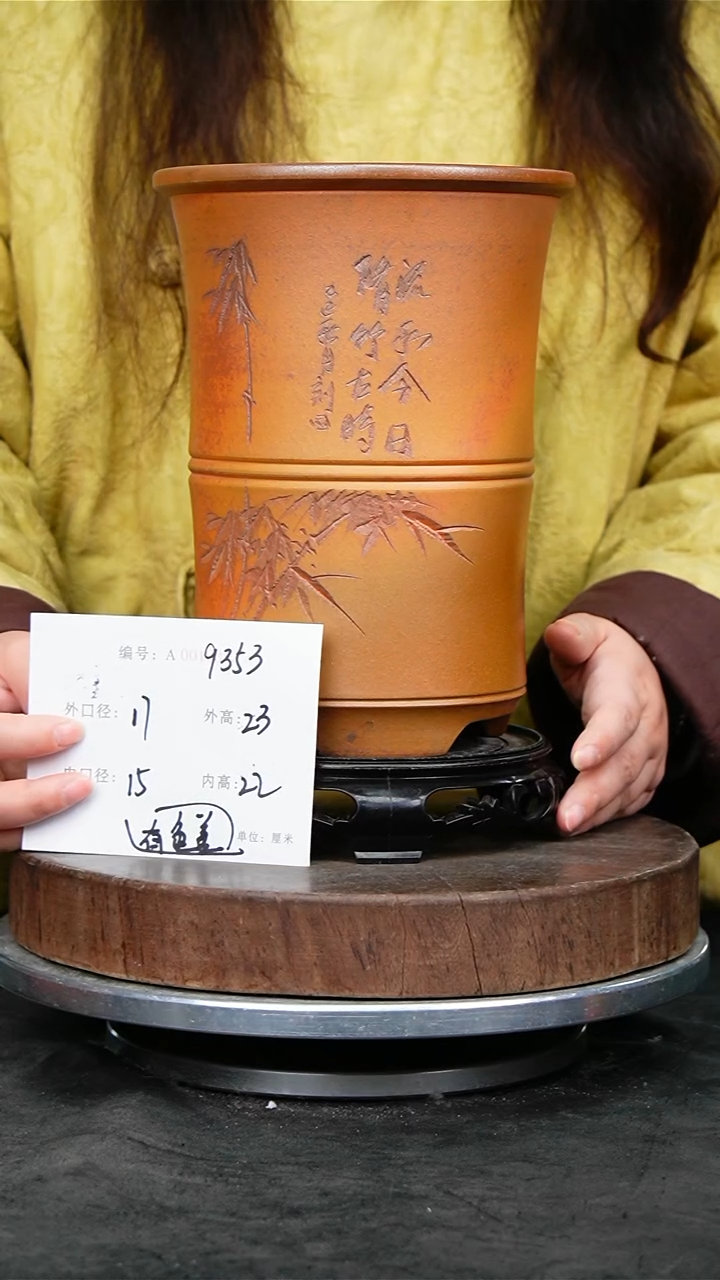 流水今日
脩竹古時
编号: A 0019353
外口径: 17 外高: 23
内口径: 15 内高: 22
有色差 单位: 厘米